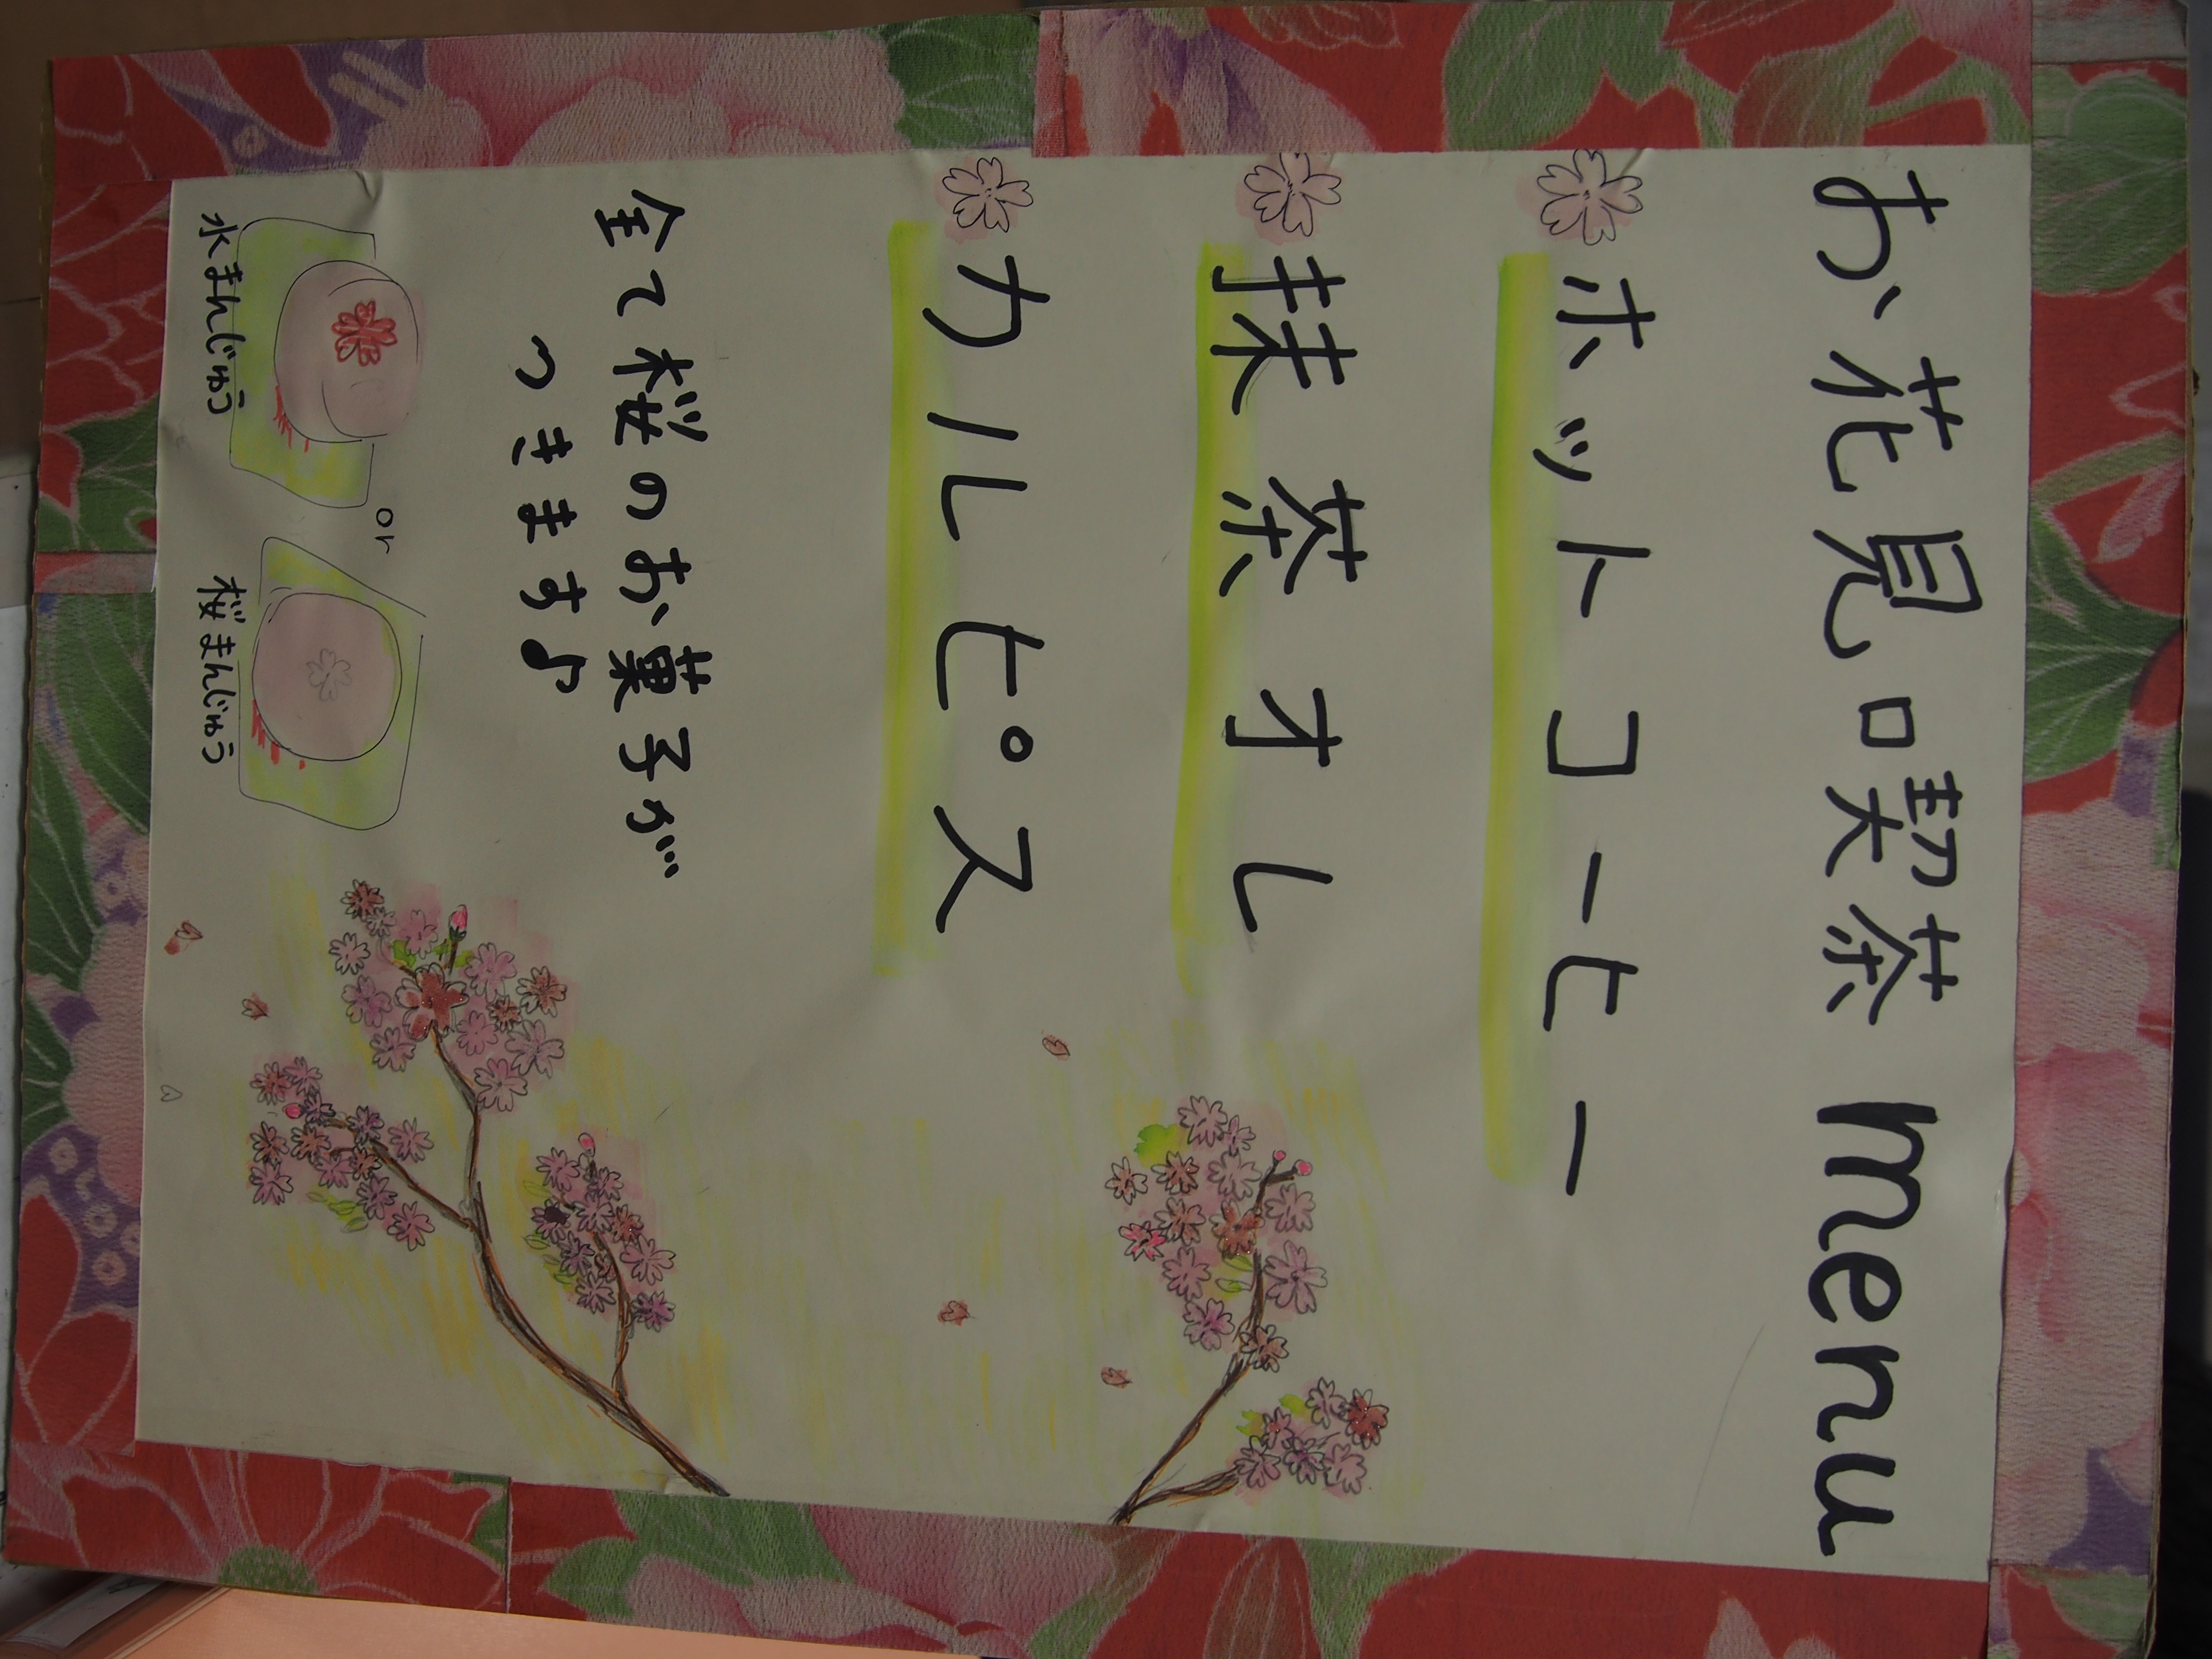 お花見喫茶 menu
ホットコーヒー
抹茶オレ
カルピス
全て桜のお菓子が
つきます♪
or
水まんじゅう
桜まんじゅう